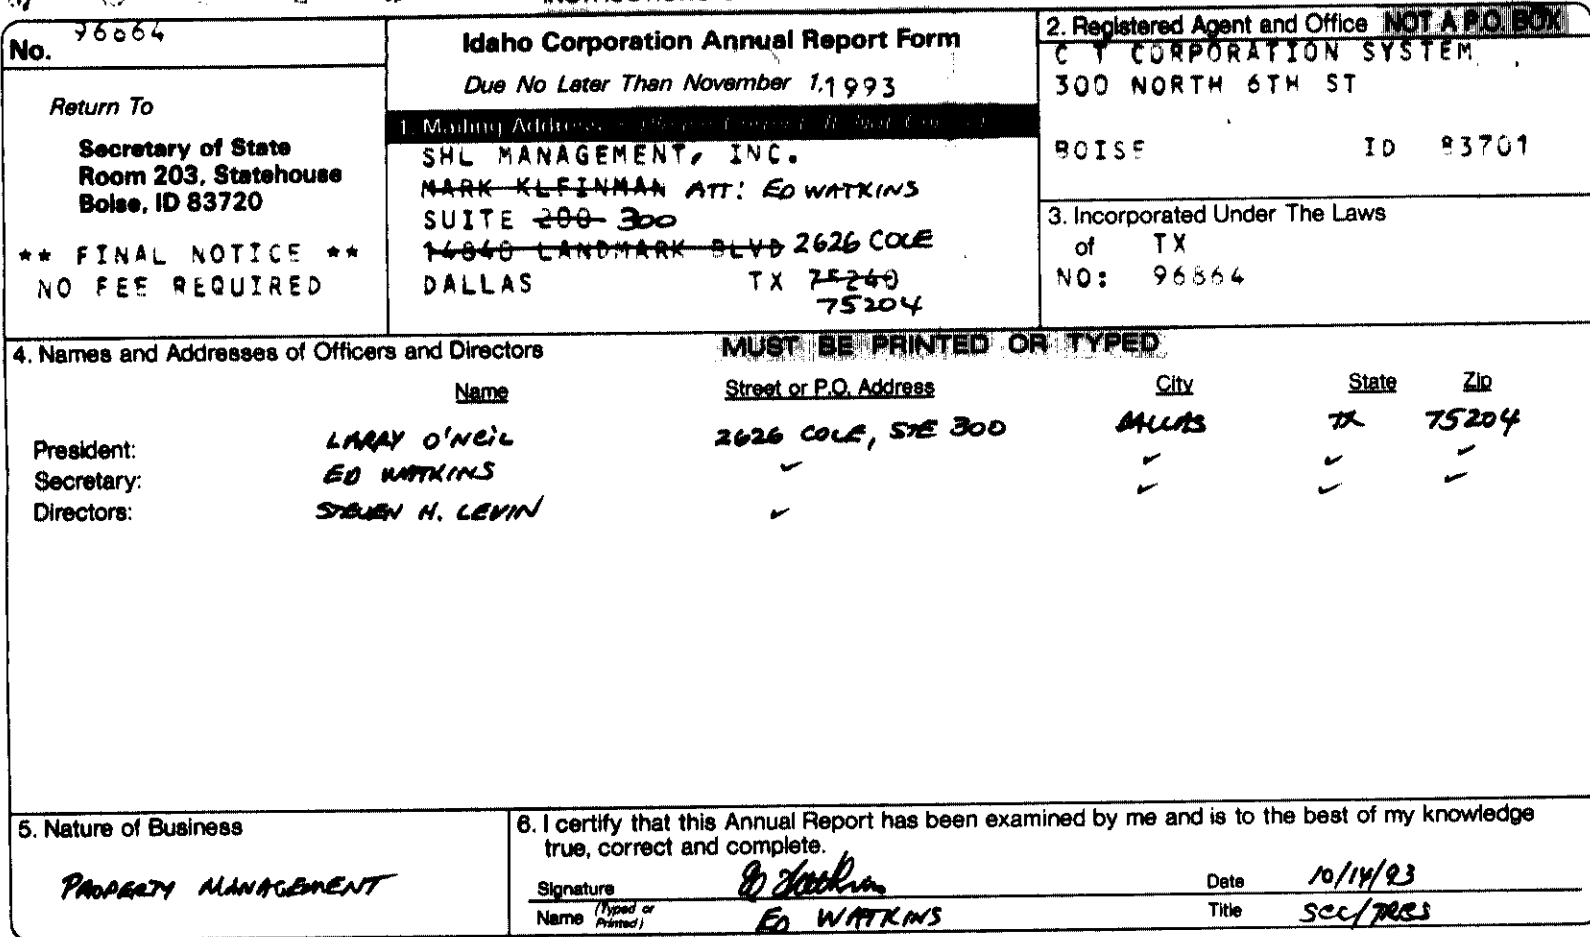 No. 96864
Idaho Corporation Annual Report Form
Due No Later Than November 1, 1993
Return To
Secretary of State
Room 203, Statehouse
Boise, ID 83720
** FINAL NOTICE **
NO FEE REQUIRED
1. Mailing Address
SHL MANAGEMENT, INC.
MARK KLEINMAN ATT: ED WATKINS
SUITE 200 300
14840 LANDMARK BLVD 2626 COLE
DALLAS TX 75240
75204
2. Registered Agent and Office NOT A P.O. BOX
C T CORPORATION SYSTEM
300 NORTH 6TH ST
BOISE ID 83701
3. Incorporated Under The Laws
of TX
NO: 96864
4. Names and Addresses of Officers and Directors MUST BE PRINTED OR TYPED
Name Street or P.O. Address City State Zip
President: LARRY O'NEIL 2626 COLE, STE 300 DALLAS TX 75204
Secretary: ED WATKINS ✓ ✓ ✓ ✓
Directors: STEVEN H. LEVIN ✓ ✓ ✓ ✓
5. Nature of Business
PROPERTY MANAGEMENT
6. I certify that this Annual Report has been examined by me and is to the best of my knowledge
true, correct and complete.
Signature Ed Watkins Date 10/14/93
Name (Typed or Printed) ED WATKINS Title SEC/TRES